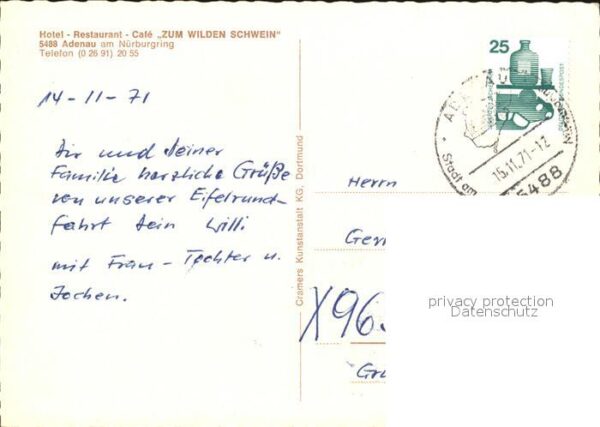 Hotel - Restaurant - Café „ZUM WILDEN SCHWEIN"
5488 Adenau am Nürburgring
Telefon (0 26 91) 20 55
14-11-71
Dir und deiner
Familie herzliche Grüße
von unserer Eifelrund-
fahrt Dein Willi
mit Frau - Tochter u.
Jochen.
Cramers Kunstanstalt KG, Dortmund
25
15.11.71-12
5488
Stadt am
Herrn
Ger
X96
Gr
privacy protection
Datenschutz